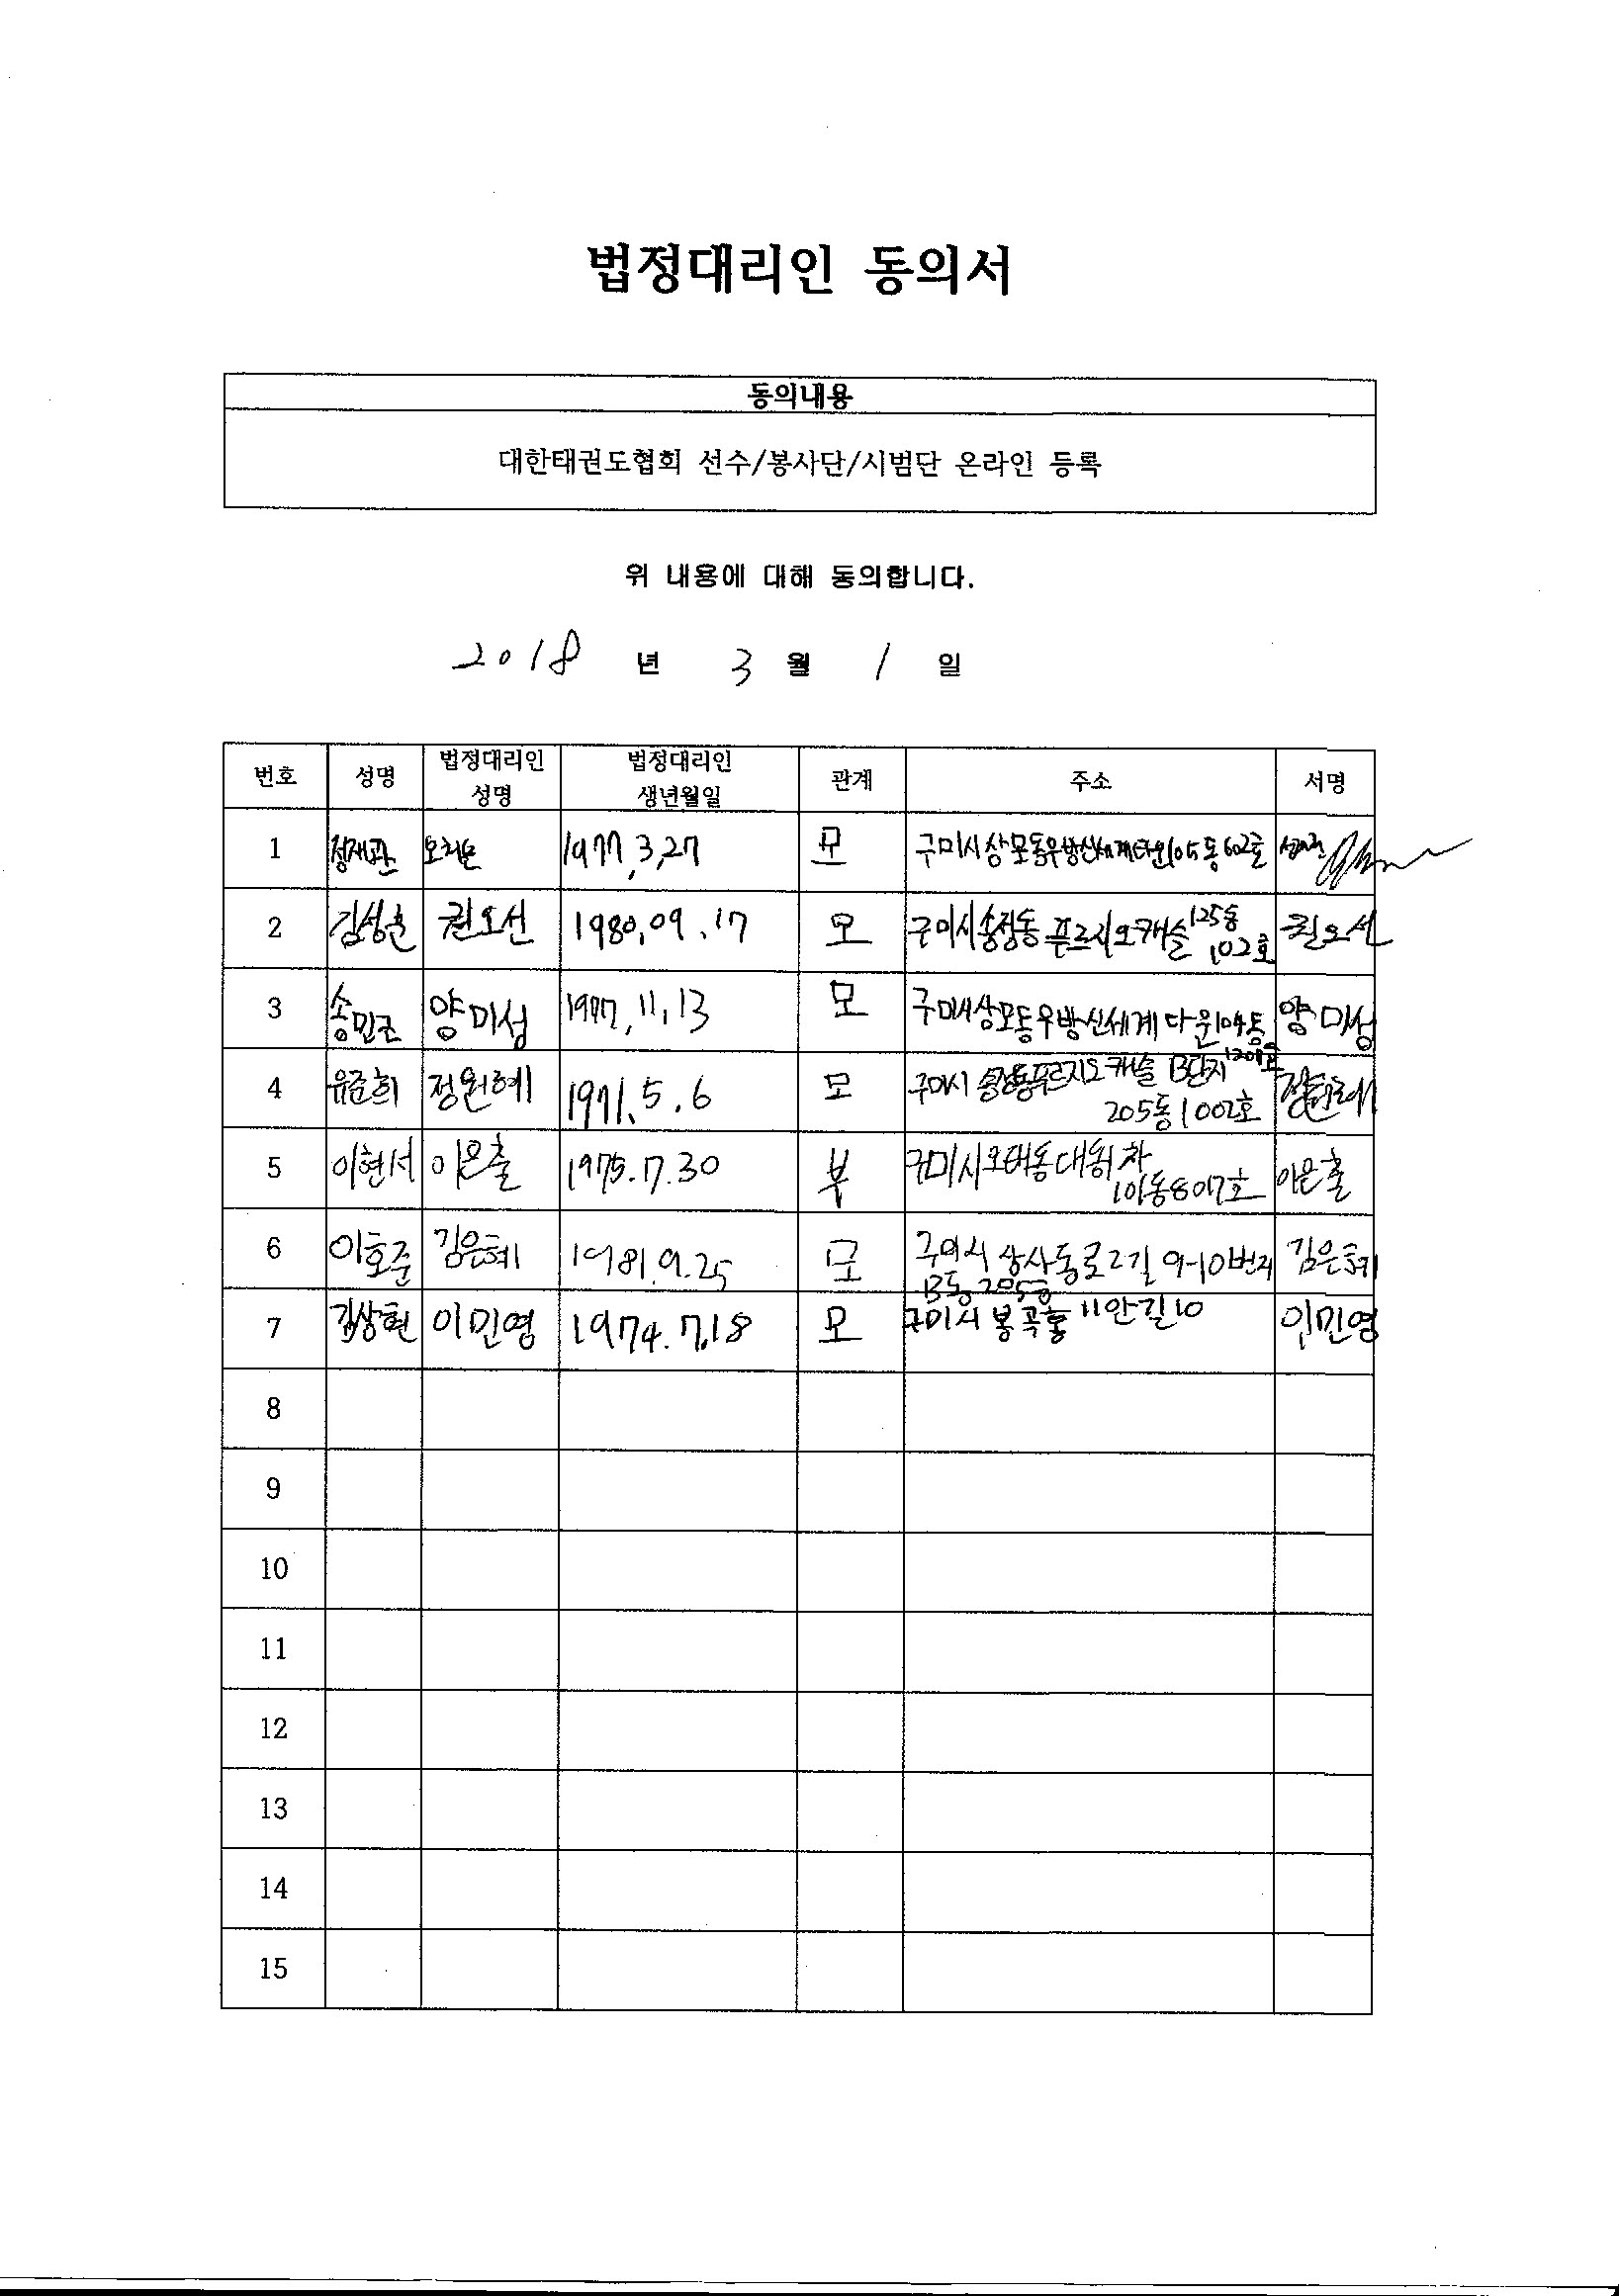 법정대리인 동의서
동의내용
대한태권도협회 선수/봉사단/시범단 온라인 등록
위 내용에 대해 동의합니다.
2018 년 3 월 1 일
번호 성명 법정대리인 성명 법정대리인 생년월일 관계 주소 서명
1 정재관 1977,3,27 모 구미시 상모동 우방신세계타운 105동 602호
2 권오선 1980.09.17 모 구미시 송정동 푸르지오캐슬 125동 102호 권오선
3 송민근 양미성 1977,11,13 모 구미시 상모동 우방신세계 타운 104동 1201호 양미성
4 유준희 정원혜 1971.5.6 모 구미시 송정동 푸르지오캐슬 B단지 205동 1002호 정원혜
5 이현서 이은출 1975.7.30 부 구미시 오태동 대동 차 101동 807호 이은출
6 이호준 김은혜 1981.9.25 모 구미시 상사동로2길 9-10번지 B동 205호 김은혜
7 김상현 이민영 1974.7.18 모 구미시 봉곡동 11안길 10 이민영
8
9
10
11
12
13
14
15